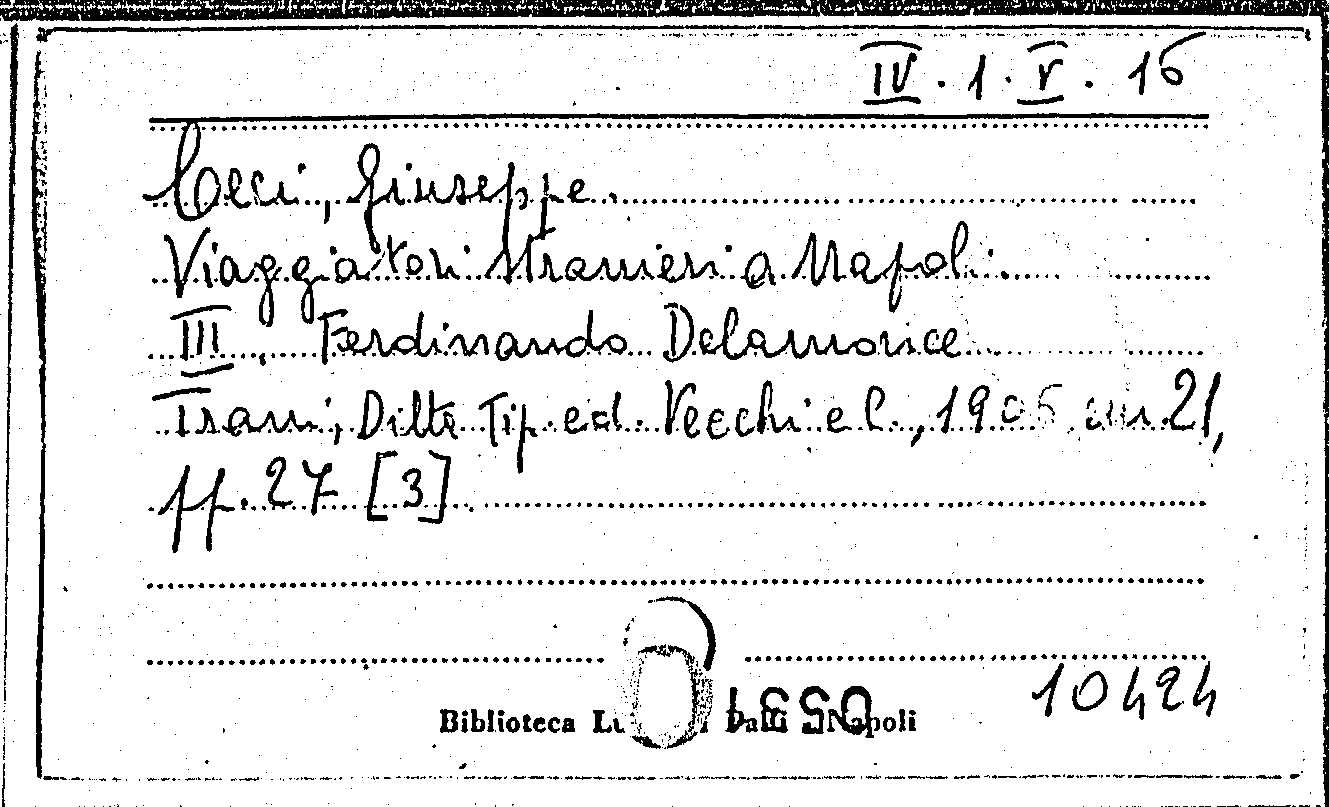 IV. 1. V. 16
Ceci, Giuseppe.
Viaggiatori stranieri a Napoli.
III. Ferdinando Delamonce
Trani, Ditta Tip. ed. Vecchi e C., 1906 cm 21,
pp. 27 [3]
10424
Biblioteca Napoli